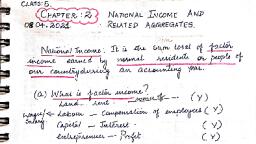 CLASS: 5.
CHAPTER: 2 NATIONAL INCOME AND
08.04.2021 RELATED AGGREGATES.
National Income: It is the sum total of factor
income earned by normal residents or people of
our country during an accounting year.
(a) What is factor income?
Land - rent (Y)
Wages/Salary ← Labour - Compensation of employees (Y)
Capital - Interest (Y)
entrepreneur - Profit (Y)